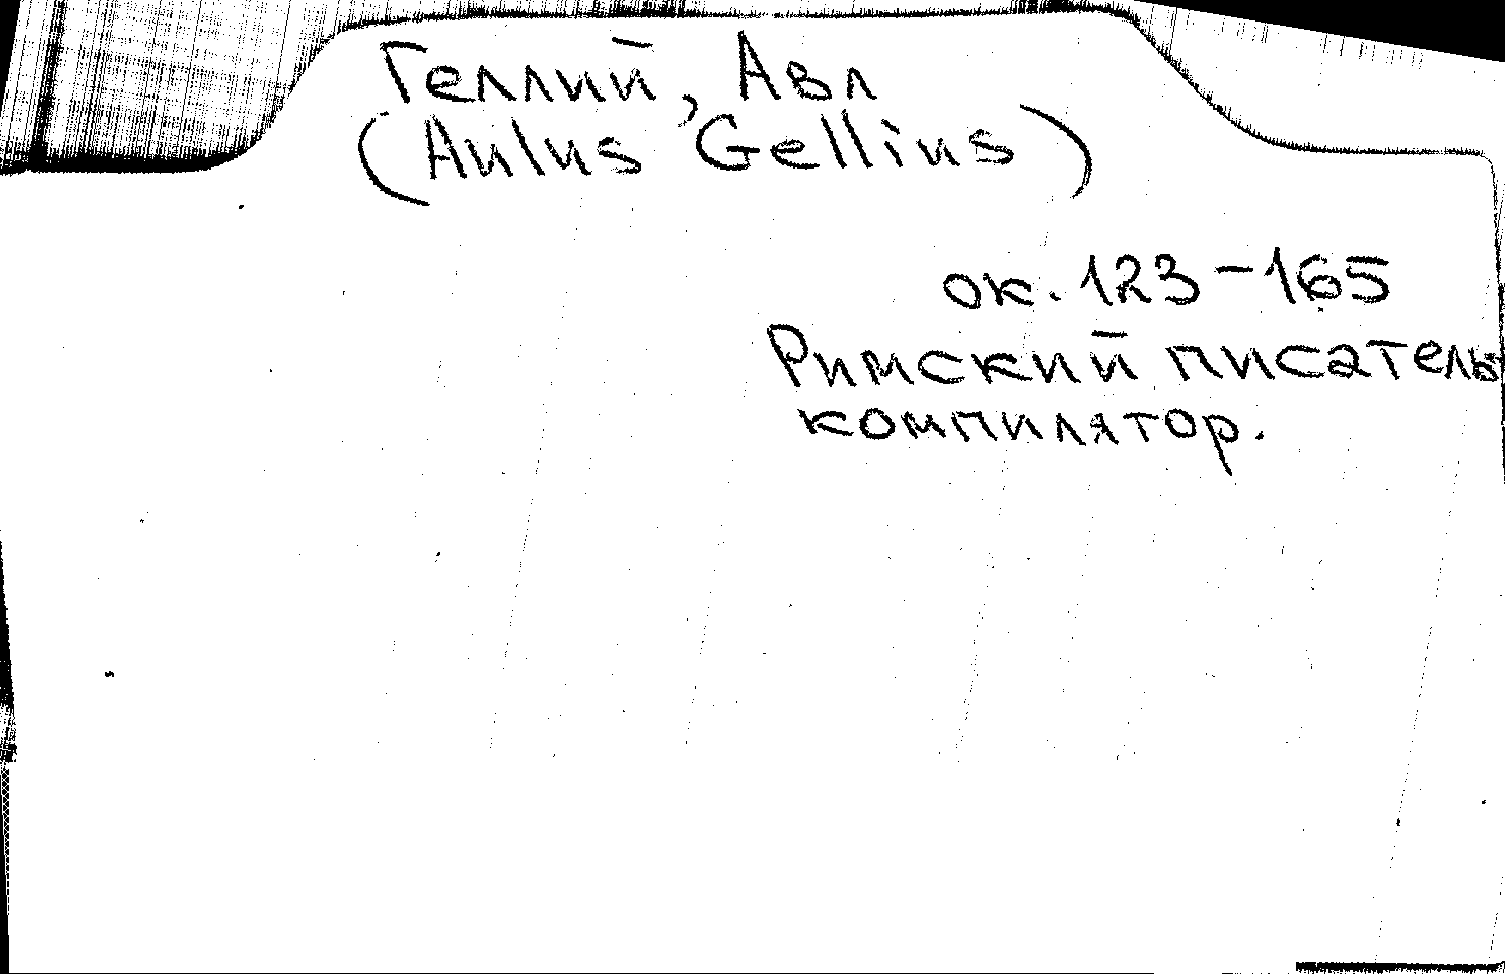 Геллий, Авл
(Aulus Gellius)
ок. 123-165
Римский писатель
компилятор.